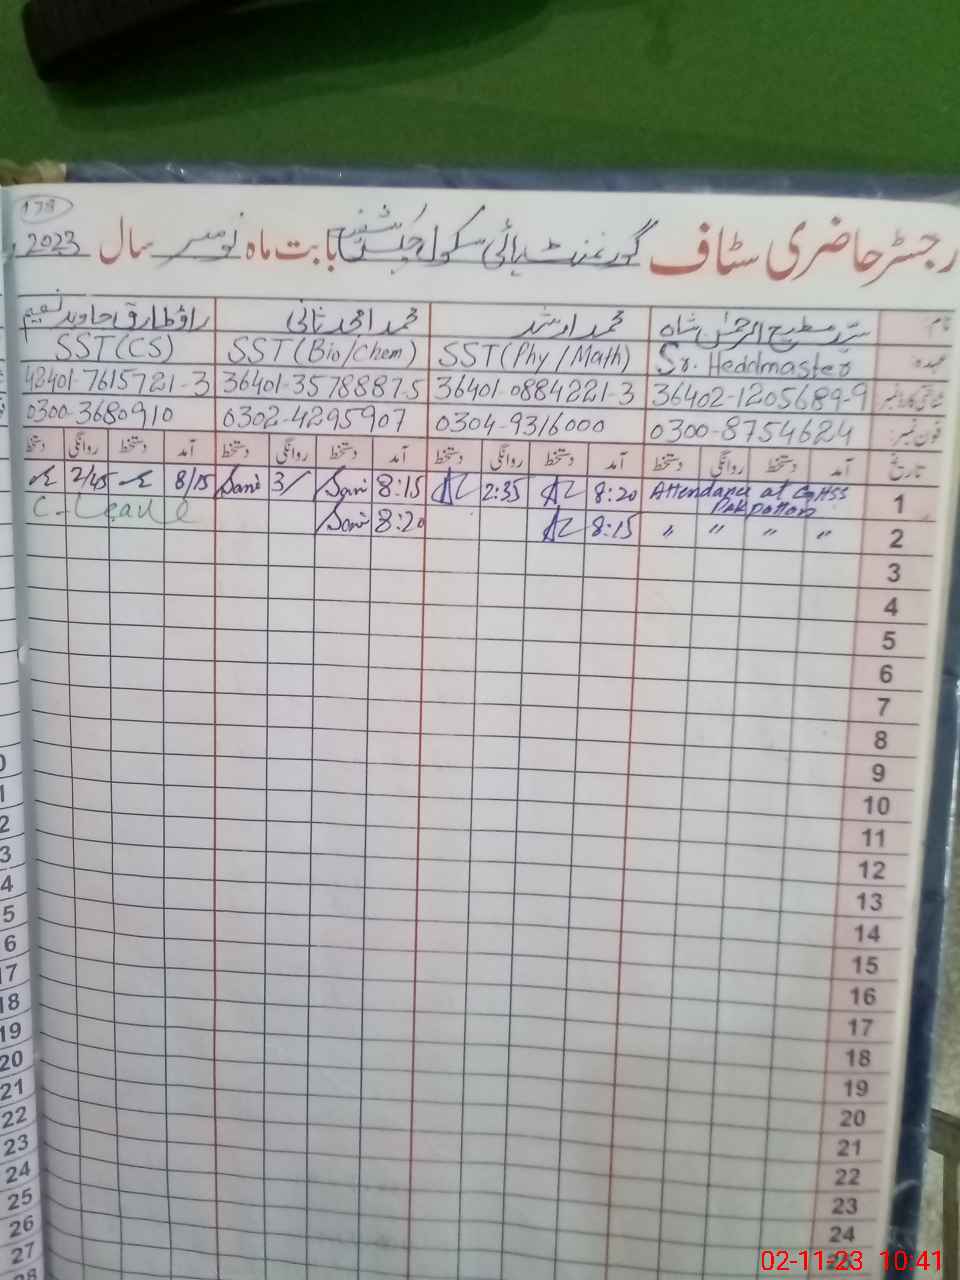 178
رجسٹر حاضری سٹاف گورنمنٹ ہائی سکول بابت ماہ نومبر سال 2023
نام محمد ارشد محمد امجد ثانی راؤ طارق جاوید نعیم
عہدہ Sr. Headmaster SST (Phy/Math) SST (Bio/Chem) SST (CS)
شناختی کارڈ نمبر 36402-1205689-9 36401-0884221-3 36401-3578887-5 42401-7615721-3
فون نمبر 0300-8754624 0304-9316000 0302-4295907 0300-3680910
تاریخ آمد دستخط روانگی دستخط آمد دستخط روانگی دستخط آمد دستخط روانگی دستخط آمد دستخط روانگی دستخط
1 Attendance at GHSS Pakpattan 8:20 2:35 8:15 Sani 3/ Sani 8/15 2/45
2 〃 〃 〃 〃 8:15 8:20 Sani C-Leave
3
4
5
6
7
8
9
10
11
12
13
14
15
16
17
18
19
20
21
22
23
24
25
17
18
19
20
21
22
23
24
25
26
27
28
02-11-23 10:41